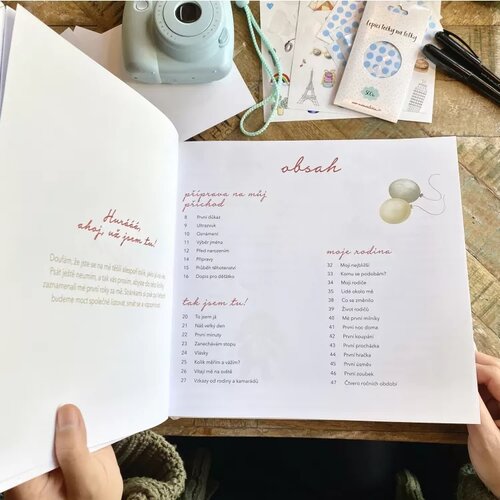 Hurááá,
ahoj, už jsem tu!
Doufám, že jste se na mě těšili alespoň
Psát ještě neumím, a tak vás prosím, abyste do této knihy
zaznamenali mé první roky za mě. Stránkami se pak od
budeme moct společně listovat, smát se a vzpomínat.
obsah
příprava na můj
příchod
8 První důkaz
9 Ultrazvuk
10 Oznámení
11 Výběr jména
12 Před narozením
14 Přípravy
15 Průběh těhotenství
16 Dopis pro děťátko
tak jsem tu!
20 To jsem já
21 Náš velký den
22 První minuty
23 Zanechávám stopu
24 Vlásky
25 Kolik měřím a vážím?
26 Vítají mě na světě
27 Vzkazy od rodiny a kamarádů
moje rodina
32 Moji nejbližší
33 Komu se podobám?
34 Moji rodiče
35 Lidé okolo mě
38 Co se změnilo
39 Život rodičů
40 Mé první milníky
41 První noc doma
42 První koupání
43 První procházka
44 První hračka
45 První úsměv
46 První zoubek
47 Čtvero ročních období
Lepicí fleky na fotky
instax